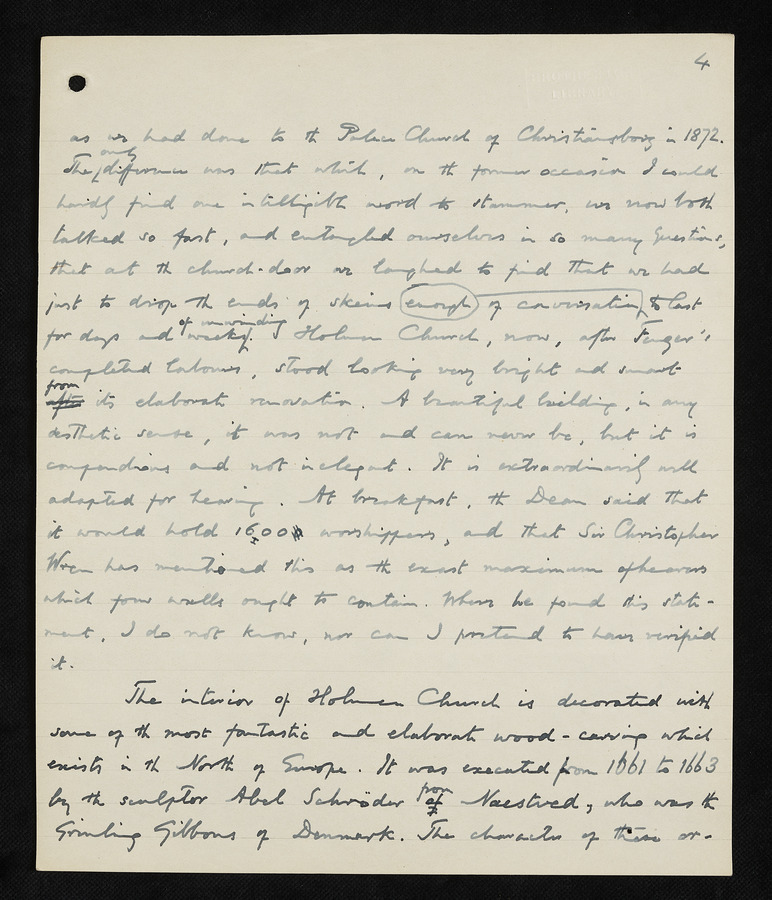 4
as we had done to th Palace Church of Christiansborg in 1872.
The only difference was that which, on th former occasion I could
hardly find one intelligible word to stammer, we now both
talked so fast, and entangled ourselves in so many questions,
that at th church-door we laughed to find that we had
just to drop th ends of skeins enough of conversation to last
for days and weeks of unwinding. Holmen Church, now, after
completed labours, stood looking very bright and smart
after from its elaborate renovation. A beautiful building, in any
aesthetic sense, it was not and can never be, but it is
compendious and not inelegant. It is extraordinarily well
adapted for hearing. At breakfast, th Dean said that
it would hold 1600 worshippers, and that Sir Christopher
Wren has mentioned this as th exact maximum of hearers
which four walls ought to contain. Where he found this state-
ment, I do not know, nor can I pretend to have verified
it.
The interior of Holmen Church is decorated with
some of th most fantastic and elaborate wood-carving which
exists in th North of Europe. It was executed from 1661 to 1663
by th sculptor Abel Schröder of from Naestved, who was th
Grinling Gibbons of Denmark. The character of these or-